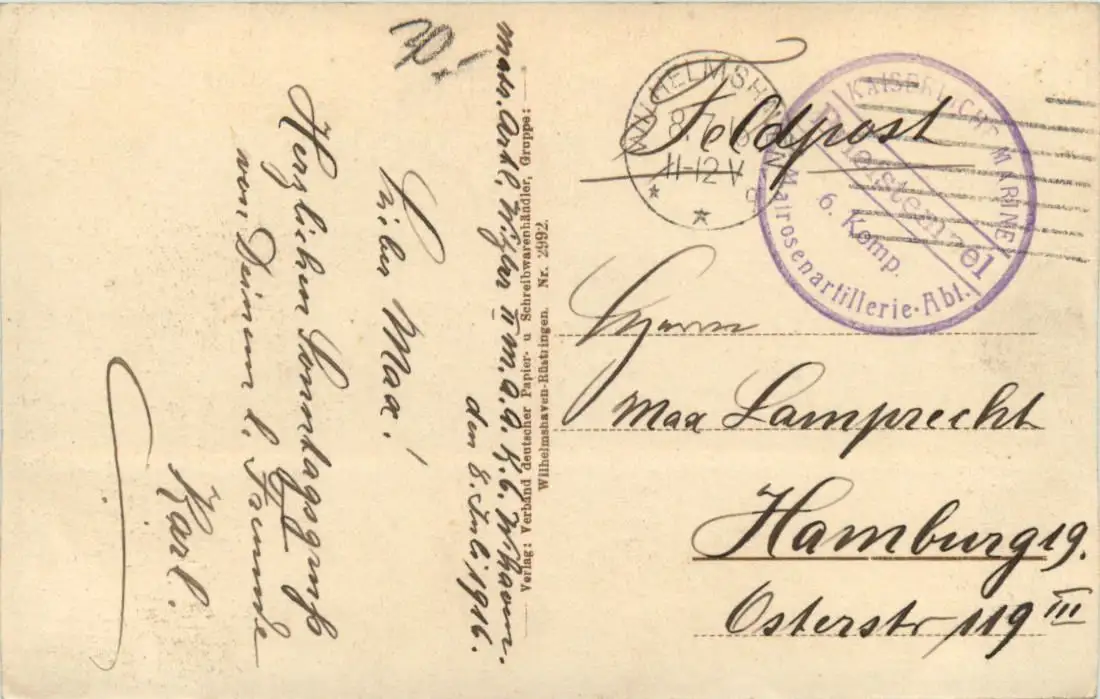 Matr. Artl.
II M.A.A. K. 6. W'haven.
den 8. Juli 1916.
Lieber Max!
Herzlichen Sonntagsgruß
von Deinem l. Freunde
Karl.
Verlag: Verband deutscher Papier- u Schreibwarenhändler, Gruppe:
Wilhelmshaven-Rüstringen. Nr. 2992.
WILHELMSHAVEN
8.7.16
11-12 V
KAISERLICHE MARINE
Briefstempel
6. Komp.
Matrosenartillerie-Abt.
Feldpost
Herrn
Max Lamprecht
Hamburg 19.
Osterstr 119 III